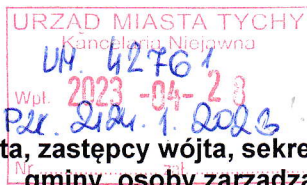 URZĄD MIASTA TYCHY
Kancelaria Niejawna
UM. 42761
Wpł. 2023 -04- 28
1. 2023
ta, zastępcy wójta, sekre
Nr
gminy, osoby zarządza